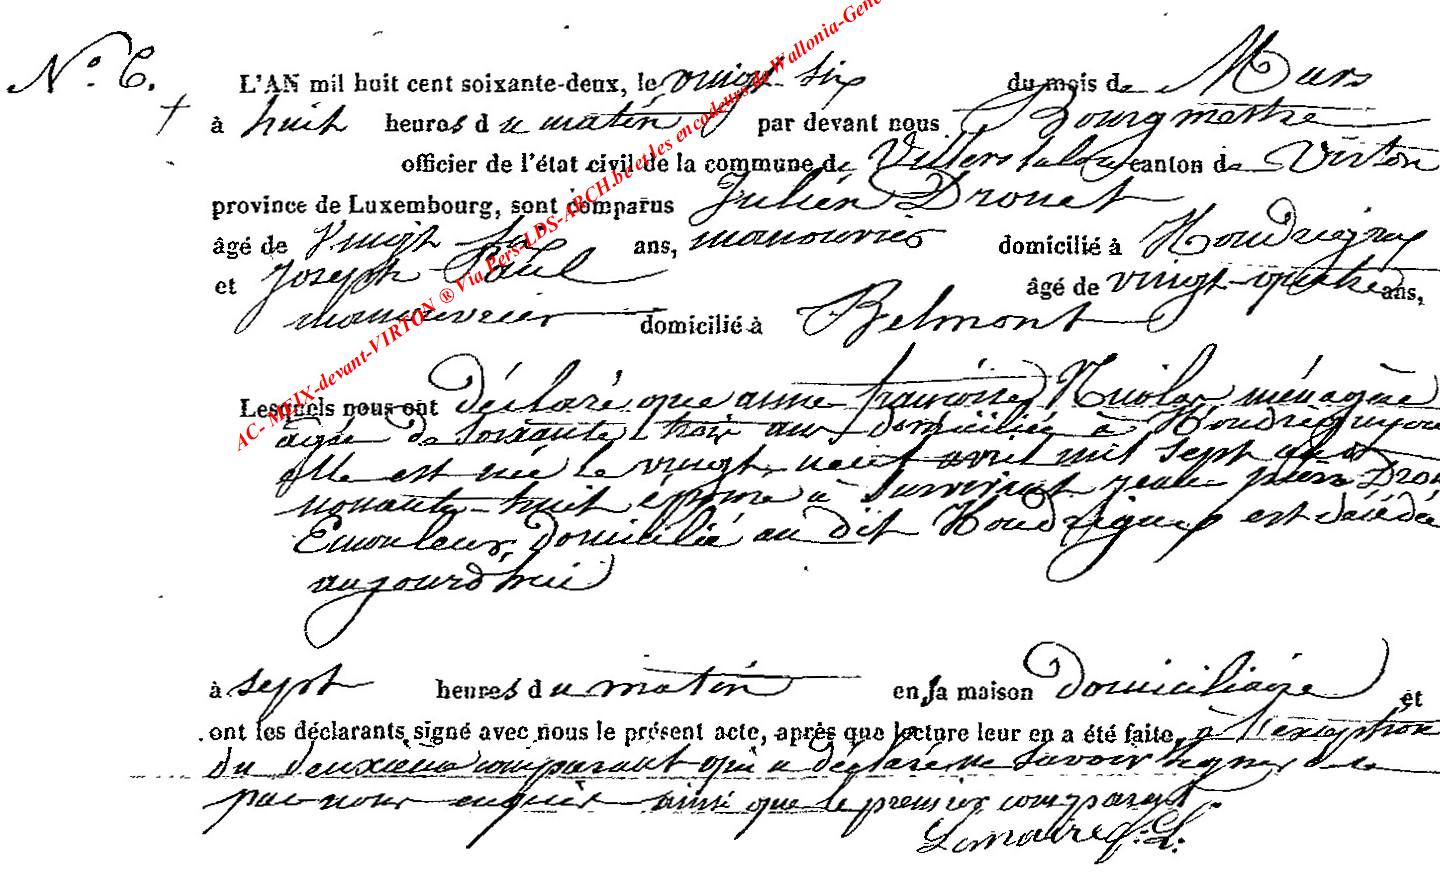 N.° 6.
L'AN mil huit cent soixante-deux, le vingt six du mois de Mars
à huit heures du matin par devant nous Bourgmestre
officier de l'état civil de la commune de Villers la loue canton de Virton
province de Luxembourg, sont comparus Julien Drouet
âgé de Vingt six ans, manouvrier domicilié à Houdrigny
et Joseph Paul âgé de vingt-quatre ans,
manouvrier domicilié à Belmont
Lesquels nous ont déclaré que anne françoise Nicolas ménagère
agée de soixante trois ans domiciliée à Houdrigny ou
elle est née le vingt neuf avril mil sept cent
nonante-huit épouse à survivant jean pierre Drou
Emouleur, domicilié au dit Houdrigny est décédée
aujourd'hui
à sept heures du matin en sa maison Domiciliaire et
ont les déclarants signé avec nous le présent acte, après que lecture leur en a été faite, à l'exception
du deuxième comparant qui a déclaré ne savoir signer de ce
par nous enquis ainsi que le premier comparant
Lemaire f. L.
AC- MEIX-devant-VIRTON ® Via Pers-LDS-ARCH.be et les encodeurs de Wallonia-Gene